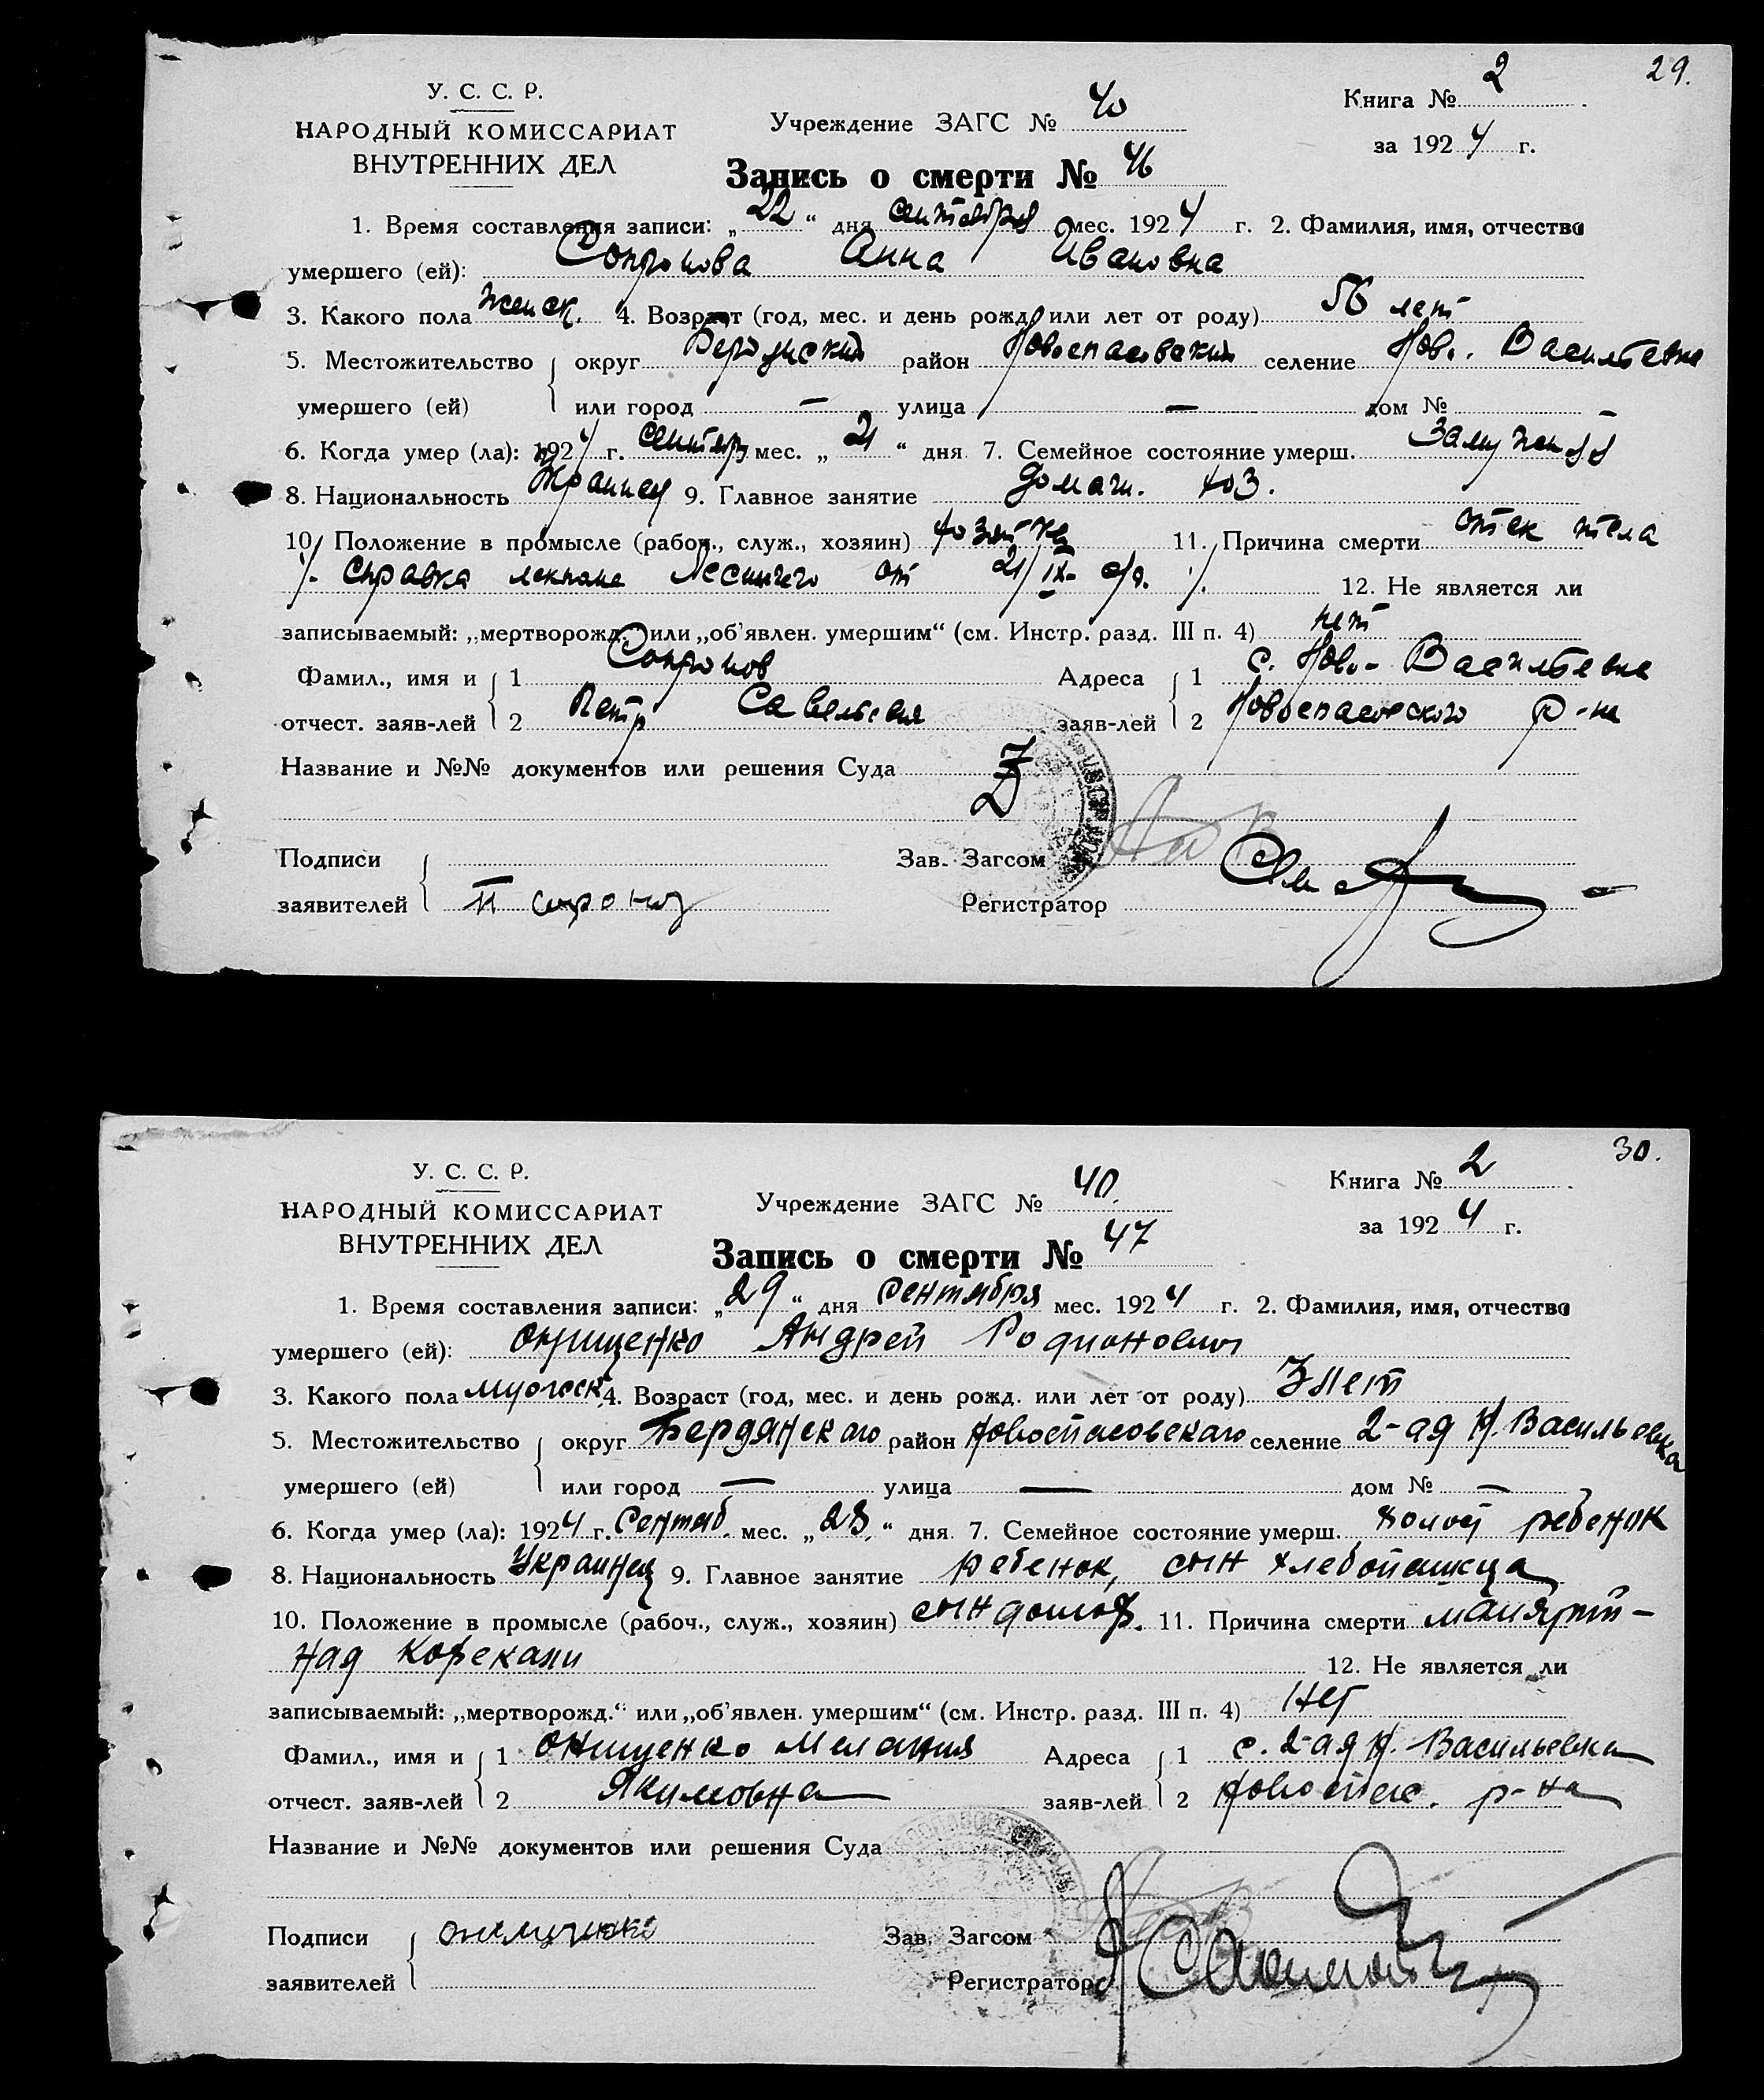 29.
У. С. С. Р.
НАРОДНЫЙ КОМИССАРИАТ
ВНУТРЕННИХ ДЕЛ
Учреждение ЗАГС № 40
Книга № 2.
за 1924 г.
Запись о смерти № 46
1. Время составления записи: „22“ дня сентября мес. 1924 г. 2. Фамилия, имя, отчество
умершего (ей): Сопронова Анна Ивановна
3. Какого пола женск. 4. Возраст (год, мес. и день рожд. или лет от роду) 56 лет
5. Местожительство округ Бердянский район Новоспасовский селение Нов. Васильевка
умершего (ей) или город — улица — дом № —
6. Когда умер (ла): 1924 г. сентябр мес. „21“ дня 7. Семейное состояние умерш. Замужняя
8. Национальность 9. Главное занятие Домаш. хоз.
10. Положение в промысле (рабоч., служ., хозяин) 11. Причина смерти отек тела
Справка лекпома от 21/IX- с/г. 12. Не является ли
записываемый: „мертворожд.“ или „об'явлен. умершим“ (см. Инстр. разд. III п. 4) нет
Фамил., имя и 1 Сопронов Адреса 1 с. Ново-Васильевка
отчест. заяв-лей 2 Петр Савельевич заяв-лей 2 Новоспасовского р-на
Название и №№ документов или решения Суда
Подписи Зав. Загсом
заявителей Регистратор
30.
У. С. С. Р.
НАРОДНЫЙ КОМИССАРИАТ
ВНУТРЕННИХ ДЕЛ
Учреждение ЗАГС № 40.
Книга № 2.
за 1924 г.
Запись о смерти № 47
1. Время составления записи: „29“ дня сентября мес. 1924 г. 2. Фамилия, имя, отчество
умершего (ей): Онищенко Андрей Родионович
3. Какого пола мужеск. 4. Возраст (год, мес. и день рожд. или лет от роду) 3 лет
5. Местожительство округ Бердянского район Новоспасовского селение 2-ая Н. Васильевка
умершего (ей) или город — улица — дом № —
6. Когда умер (ла): 1924 г. Сентяб. мес. „28“ дня 7. Семейное состояние умерш. холост ребенок
8. Национальность Украинец 9. Главное занятие ребенок, сын хлебопашца
10. Положение в промысле (рабоч., служ., хозяин) сын домох. 11. Причина смерти
12. Не является ли
записываемый: „мертворожд.“ или „об'явлен. умершим“ (см. Инстр. разд. III п. 4) Нет
Фамил., имя и 1 Онищенко Мелания Адреса 1 с. 2-ая Н. Васильевка
отчест. заяв-лей 2 Якимовна заяв-лей 2 Новоспас. р-на
Название и №№ документов или решения Суда
Подписи Онищенко Зав. Загсом
заявителей Регистратор